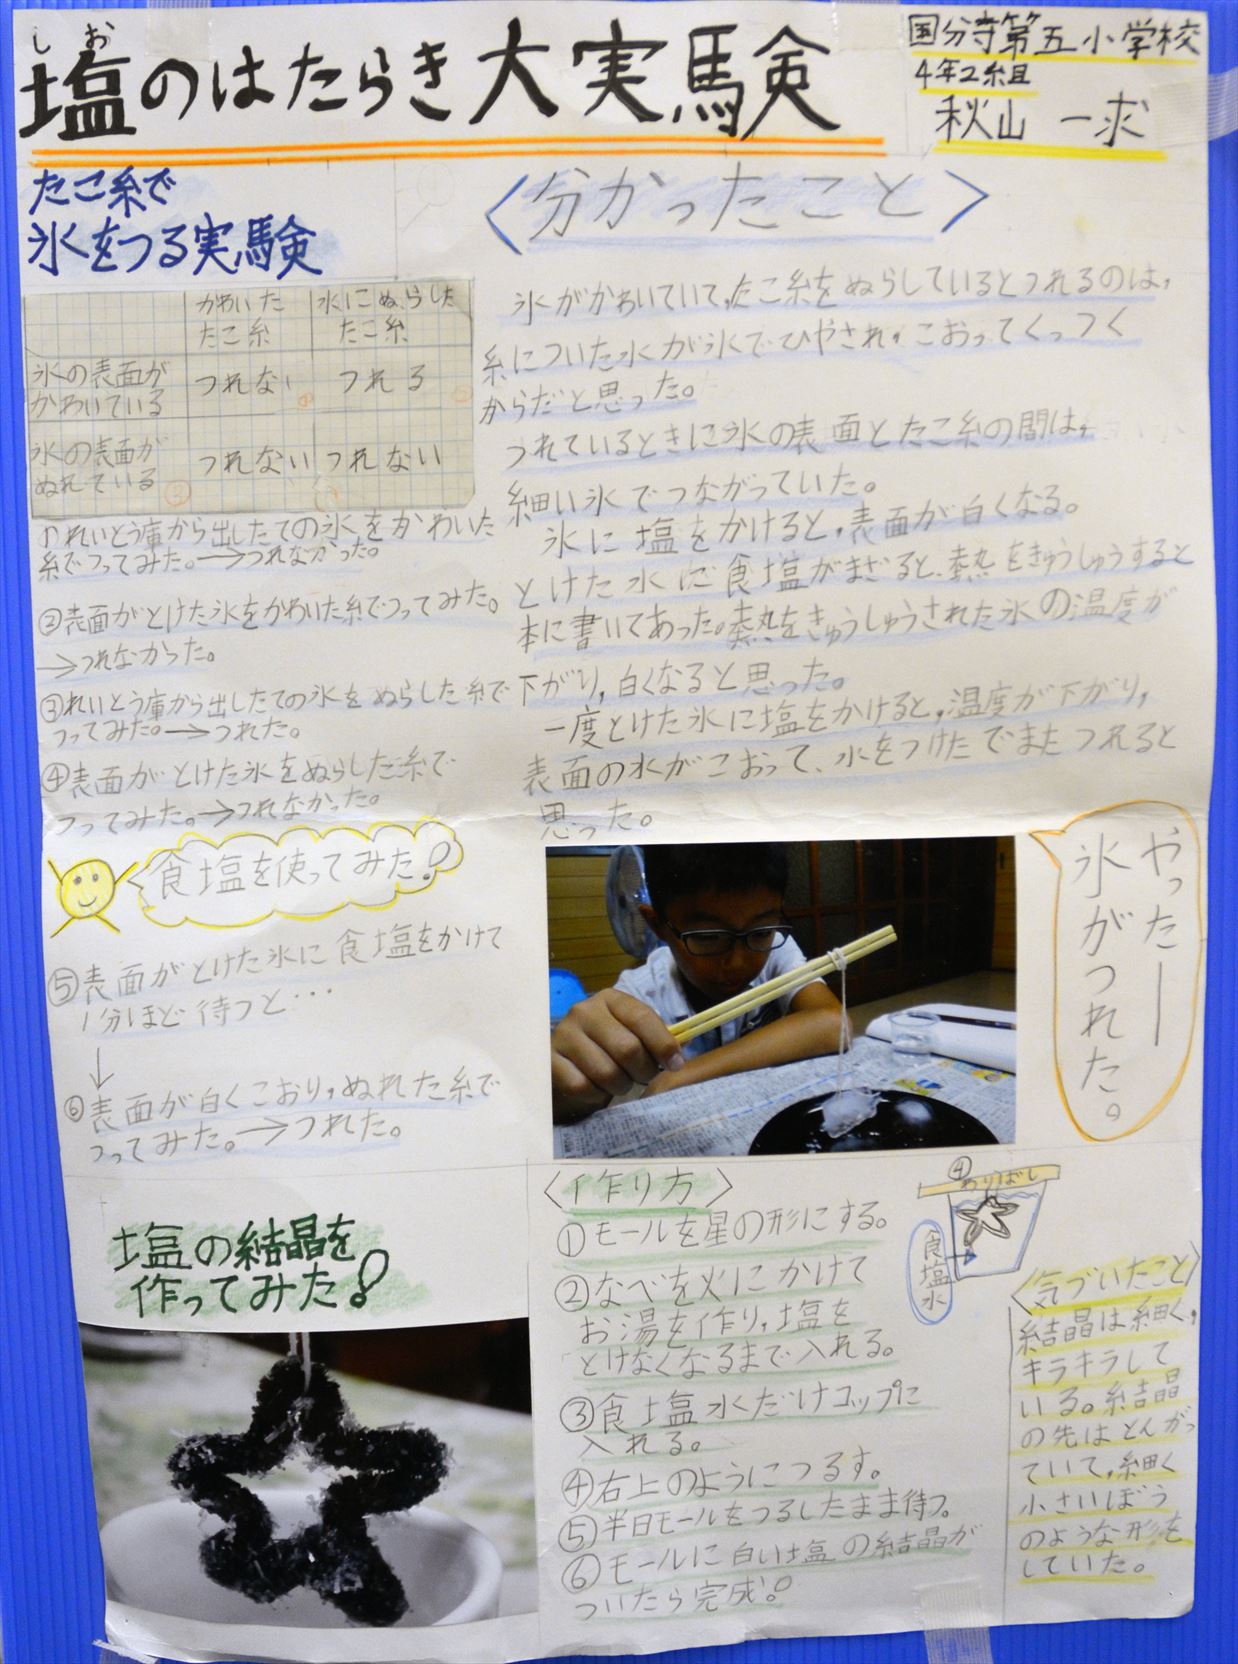 しお
塩のはたらき大実験
国分寺第五小学校
4年2組
秋山 一求
たこ糸で
氷をつる実験
かわいた
たこ糸
水にぬらした
たこ糸
氷の表面が
かわいている
つれない
つれる
氷の表面が
ぬれている
つれない
つれない
①れいとう庫から出したての氷をかわいた
糸でつってみた。→つれなかった。
②表面がとけた氷をかわいた糸でつってみた。
→つれなかった。
③れいとう庫から出したての氷をぬらした糸で
つってみた。→つれた。
④表面がとけた氷をぬらした糸で
つってみた。→つれなかった。
食塩を使ってみた!
⑤表面がとけた氷に食塩をかけて
1分ほど待つと…
↓
⑥表面が白くこおり,ぬれた糸で
つってみた。→つれた。
〈分かったこと〉
氷がかわいていて,たこ糸をぬらしているとつれるのは,
糸についた水が氷でひやされ,こおってくっつく
からだと思った。
つれているときに氷の表面とたこ糸の間は,
細い氷でつながっていた。
氷に塩をかけると,表面が白くなる。
とけた水に食塩がまざると、熱をきゅうしゅうすると
本に書いてあった。熱をきゅうしゅうされた氷の温度が
下がり,白くなると思った。
一度とけた氷に塩をかけると,温度が下がり,
表面の水がこおって、水をつけた でまたつれると
思った。
やったー
氷がつれた。
塩の結晶を
作ってみた!
〈作り方〉
①モールを星の形にする。
②なべを火にかけて
お湯を作り,塩を
とけなくなるまで入れる。
③食塩水だけコップに
入れる。
④右上のようにつるす。
⑤半日モールをつるしたまま待つ。
⑥モールに白い塩の結晶が
ついたら完成!
④
わりばし
食塩水
〈気づいたこと〉
結晶は細く,
キラキラして
いる。結晶
の先はとんがっ
ていて,細く
小さいぼう
のような形を
していた。